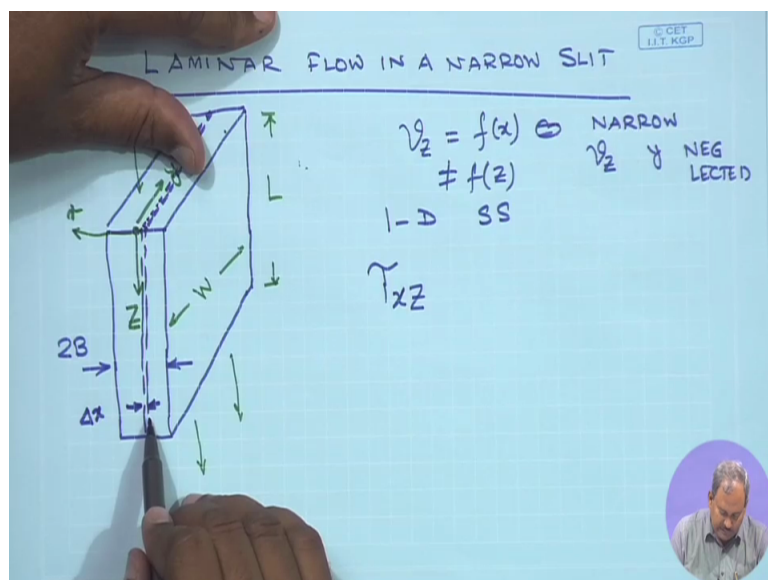 © CET
I.I.T. KGP
LAMINAR FLOW IN A NARROW SLIT
v_z = f(x) ⇔ NARROW
≠ f(z)
v_z y NEG
LECTED
1-D SS
τ_xz
x
y
z
L
W
2B
Δx